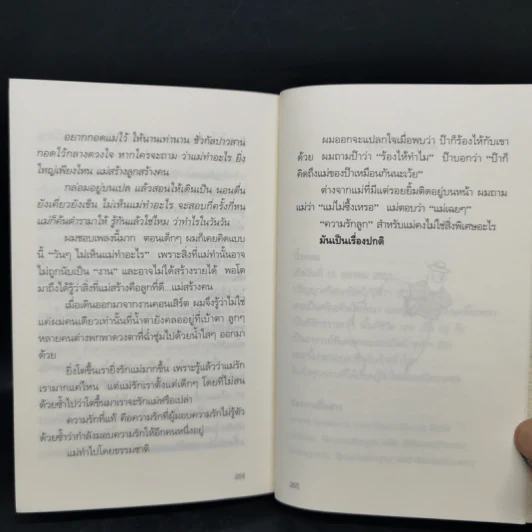 อยากกอดแม่ไว้ ให้นานเท่านาน ชั่วกัลปาวสาน
กอดไว้กลางดวงใจ หากใครจะถาม ว่าแม่ทำอะไร ยิ่ง
ใหญ่เพียงไหน แม่สร้างลูกสร้างคน
กล่อมอยู่บนเปล แล้วสอนให้เดินเป็น นอนตื่น
ยังเคี่ยวยังเข็น ไม่เห็นแม่ทำอะไร จะสอบกี่ครั้งกี่หน
แม่ก็ค้นตำรามาให้ รู้กันแล้วใช่ไหม ว่าทำไรในวันวัน
ผมชอบเพลงนี้มาก ตอนเด็กๆ ผมก็เคยคิดแบบ
นี้ "วันๆ ไม่เห็นแม่ทำอะไร" เพราะสิ่งที่แม่ทำนั้นอาจ
ไม่ถูกนับเป็น "งาน" และอาจไม่ได้สร้างรายได้ พอโต
มาถึงได้รู้ว่าสิ่งที่แม่สร้างคือลูกที่ดี..แม่สร้างคน
เมื่อเดินออกมาจากงานคอนเสิร์ต ผมจึงรู้ว่าไม่ใช่
แค่ผมคนเดียวเท่านั้นที่น้ำตายังคลออยู่ที่เบ้าตา ลูกๆ
หลายคนต่างพกพาดวงตาที่ฉ่ำชุ่มไปด้วยน้ำใสๆ ออกมา
ด้วย
ยิ่งโตขึ้นเรายิ่งรักแม่มากขึ้น เพราะรู้แล้วว่าแม่รัก
เรามากแค่ไหน แต่แม่รักเราตั้งแต่เด็กๆ โดยที่ไม่สน
ด้วยซ้ำไปว่าโตขึ้นมาเราจะรักแม่หรือเปล่า
ความรักที่แท้ คือความรักที่ผู้มอบความรักไม่รู้ตัว
ด้วยซ้ำว่ากำลังมอบความรักให้อีกคนหนึ่งอยู่
แม่ทำไปโดยธรรมชาติ
ผมออกจะแปลกใจเมื่อพบว่า ป๊าก็ร้องไห้กับเขา
ด้วย ผมถามป๊าว่า "ร้องไห้ทำไม" ป๊าบอกว่า "ป๊าก็
คิดถึงแม่ของป๊าเหมือนกันนะเว้ย"
ต่างจากแม่ที่มีแต่รอยยิ้มติดอยู่บนหน้า ผมถาม
แม่ว่า "แม่ไม่ซึ้งเหรอ" แม่ตอบว่า "แม่เฉยๆ"
"ความรักลูก" สำหรับแม่คงไม่ใช่สิ่งพิเศษอะไร
มันเป็นเรื่องปกติ